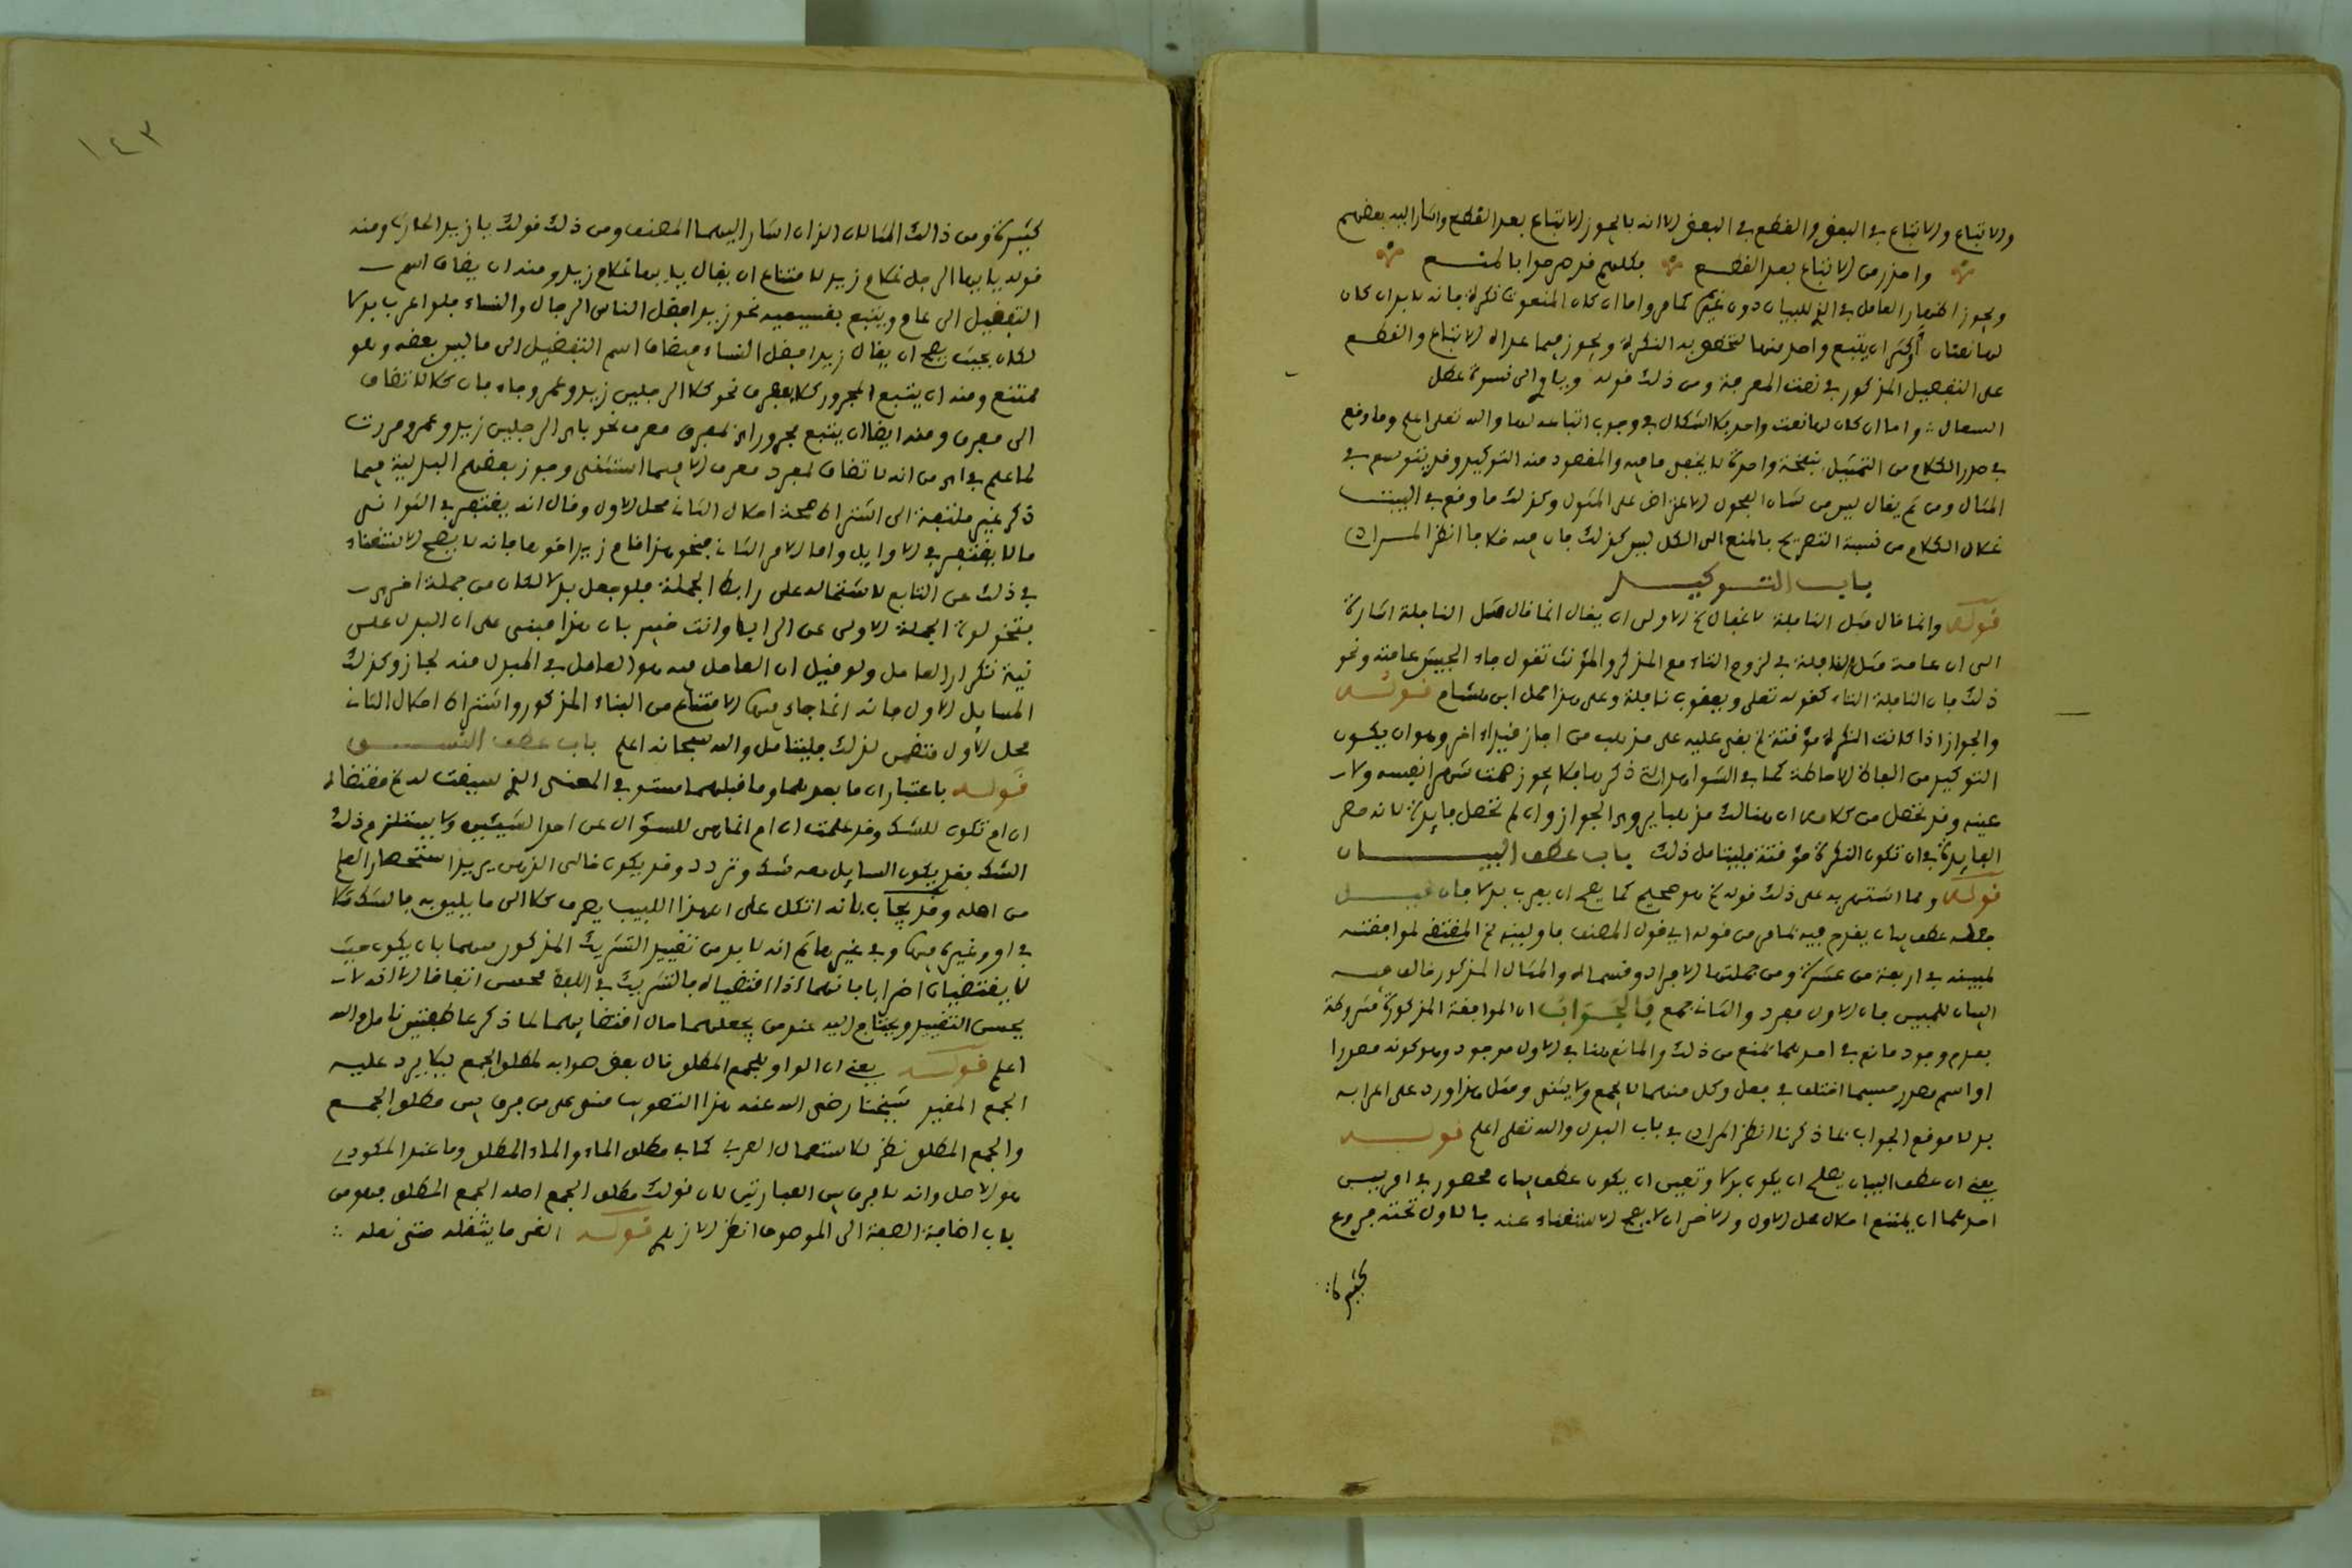 والاتباع والاتباع في البعض والقطع في البعض الا انه لا يجوز الاتباع بعد القطع واشار اليه بعضهم
واحذر من الاتباع بعد القطع فكلهم قد صرحوا بالمنع
ويجوز اظهار العامل في الذي للبيان دون غيره كما مر واما ان كان المنعوت نكرة فانه لا بد ان كان
لها نعتان او اكثر ان يتبع واحد منها لتخصص به النكرة ويجوز فيما عداه الاتباع والقطع
على التفصيل المذكور في نعت المعرفة ومن ذلك قوله وياوي الى نسوة عطل
السعال واما ان كان لها نعت واحد فلا اشكال في وجوب اتباعه لها والله تعلى اعلم وما وقع
في صدر الكلام من التمثيل واحدة لا يخفى ما فيه والمقصود منه التوكيد وقد يتوسع في
المثال ومن ثم يقال ليس من شان الفحول الاعتراض على المثول وكذلك ما وقع في البيت
الكلام من نسبة التصريح بالمنع الى الكل ليس كذلك فان فيه خلافا انظر المرادي
باب التوكيد
قوله وانما قال مثل النافلة الاولى ان يقال انما قال مثل النافلة اشارة
الى ان عامة مثل النافلة في لزوم التاء مع المذكر والمؤنث تقول جاء الجيش عامته ونحو
ذلك فان النافلة التاء كقوله تعلى ويعقوب نافلة وعلى هذا حمل ابن هشام قوله
والجواز اذا كانت النكرة مؤقتة بقي عليه على مذهب من اجاز شيء اخر وهو ان يكون
التوكيد من الفاظ الاحاطة كما في الشواهد التي ذكرها فلا يجوز صمت شهرا نفسه ولا
عينه وقد تحصل من كلامه ان هنالك مذهبا يرى الجواز وان لم تحصل فايدة لانه حصر
الفايدة في ان تكون النكرة مؤقتة فليتامل ذلك باب عطف البيان
قوله ومما استشهد به على ذلك قوله هو صحيح كما يصح ان يعرب بدلا فان قيل
جعله عطف بيان يقدح فيه ما مر من قوله اي قول المصنف فاولينه المقتضي لموافقته
لمبينه في اربعة من عشرة ومن جملتها الافراد وقسماه والمثال المذكور خالف فيه
البيان للمبين فان الاول مفرد والثاني جمع فالجواب ان الموافقة المذكورة مشروطة
بعدم وجود مانع في احدهما يمنع من ذلك والمانع هنا في الاول موجود وهو كونه مصدرا
او اسم مصدر حسبما اختلف في فعل وكل منهما لا يجمع ولا يثنى ومثل هذا اورد على اعرابه
بدلا موقع الجواب بما ذكرنا انظر المرادي في باب البدل والله تعلى اعلم قوله
يعني ان عطف البيان يصلح ان يكون بدلا وتعين ان يكون عطف بيان محصور في امرين
احدهما ان يمتنع احلال محل الاول والاخر ان لا يصح الاستغناء عنه فالاول تحته فروع
كثيرة
١٤٣
كثيرة ومن ذالك المثالان اللذان اشار اليهما المصنف ومن ذلك قولك يا زيد الحارث ومنه
قوله يا ايها الرجل غلام زيد لامتناع ان يقال يا ايها غلام زيد ومنه ان يضاف اسم
التفضيل الى عام ويتبع بقسيميه نحو زيد افضل الناس الرجال والنساء فلو اعرب بدلا
لكان بحيث يصح ان يقال زيد افضل النساء فيضاف اسم التفضيل الى ما ليس بعضه وهو
ممتنع ومنه ان يتبع المجرور كلا بمفرق نحو كلا الرجلين زيد وعمرو جاء فان كلا لا تضاف
الى مفرق ومنه ايضا ان يتبع مجرور اي بمفرق نحو باي الرجلين زيد وعمرو مررت
لما علم في اي من انه لا تضاف لمفرد معرف الا فيما استثني وجوز بعضهم البدلية فيما
ذكر غير ملتفت الى اشتراط صحة احلال الثاني محل الاول وقال انه يغتفر في الثواني
ما لا يغتفر في الاوايل واما الامر الثاني فنحو هذا قام زيد اخوها فانه لا يصح الاستغناء
في ذلك عن التابع لاشتماله على رابط الجملة فلو جعل بدلا لكان من جملة اخرى
فتخلو الجملة الاولى عن الرابط وانت خبير بان هذا مبني على ان البدل على
نية تكرار العامل ولو قيل ان العامل فيه هو العامل في المبدل منه لجاز وكذلك
المسايل الاول فانه انما جاء فيها الامتناع من البناء المذكور واشتراط احلال الثاني
محل الاول فتفطن لذلك فليتامل والله سبحانه اعلم باب عطف النسق
قوله باعتبار ان ما بعدهما وما قبلهما مستو في المعنى الذي سيقت له مقتضاه
ان ام تكون للشك وقد علمت ان ام انما هي للسؤال عن احد الشيئين ولا يستلزم ذلك
الشك فقد يكون السايل معه شك وتردد وقد يكون خالي الذهن يريد استحضار العلم
من اهله وقد يجاب بانه اتكل على ان هذا اللبيب يصرف كلا الى ما يليق به فالشك مثلا
في او وغيره فيها وفي غيرها ثم انه لا بد من تقييد التشريك المذكور فيهما بان يكون حيث
لا يقتضيان اضرابا فانهما اذا اقتضياه فالتشريك في اللفظ فحسب اتفاقا الا انه لا
يحسن التقييد ويحتاج اليه عند من يجعلهما حال اقتضايهما لما ذكر عاطفتين تامل والله
اعلم قوله يعني ان الواو للجمع المطلق قال بعض صوابه لمطلق الجمع ليلا يرد عليه
الجمع المقيد شيخنا رضي الله عنه هذا التصويب مبني على من فرق بين مطلق الجمع
والجمع المطلق نظر لاستعمال العرب كما في مطلق الماء والماء المطلق وما عند المكودي
هو الاصل وانه لا فرق بين العبارتين لان قولك مطلق الجمع اصله الجمع المطلق فهو من
باب اضافة الصفة الى الموصوف انظر الازهري قوله القى ما يثقله حتى نعله